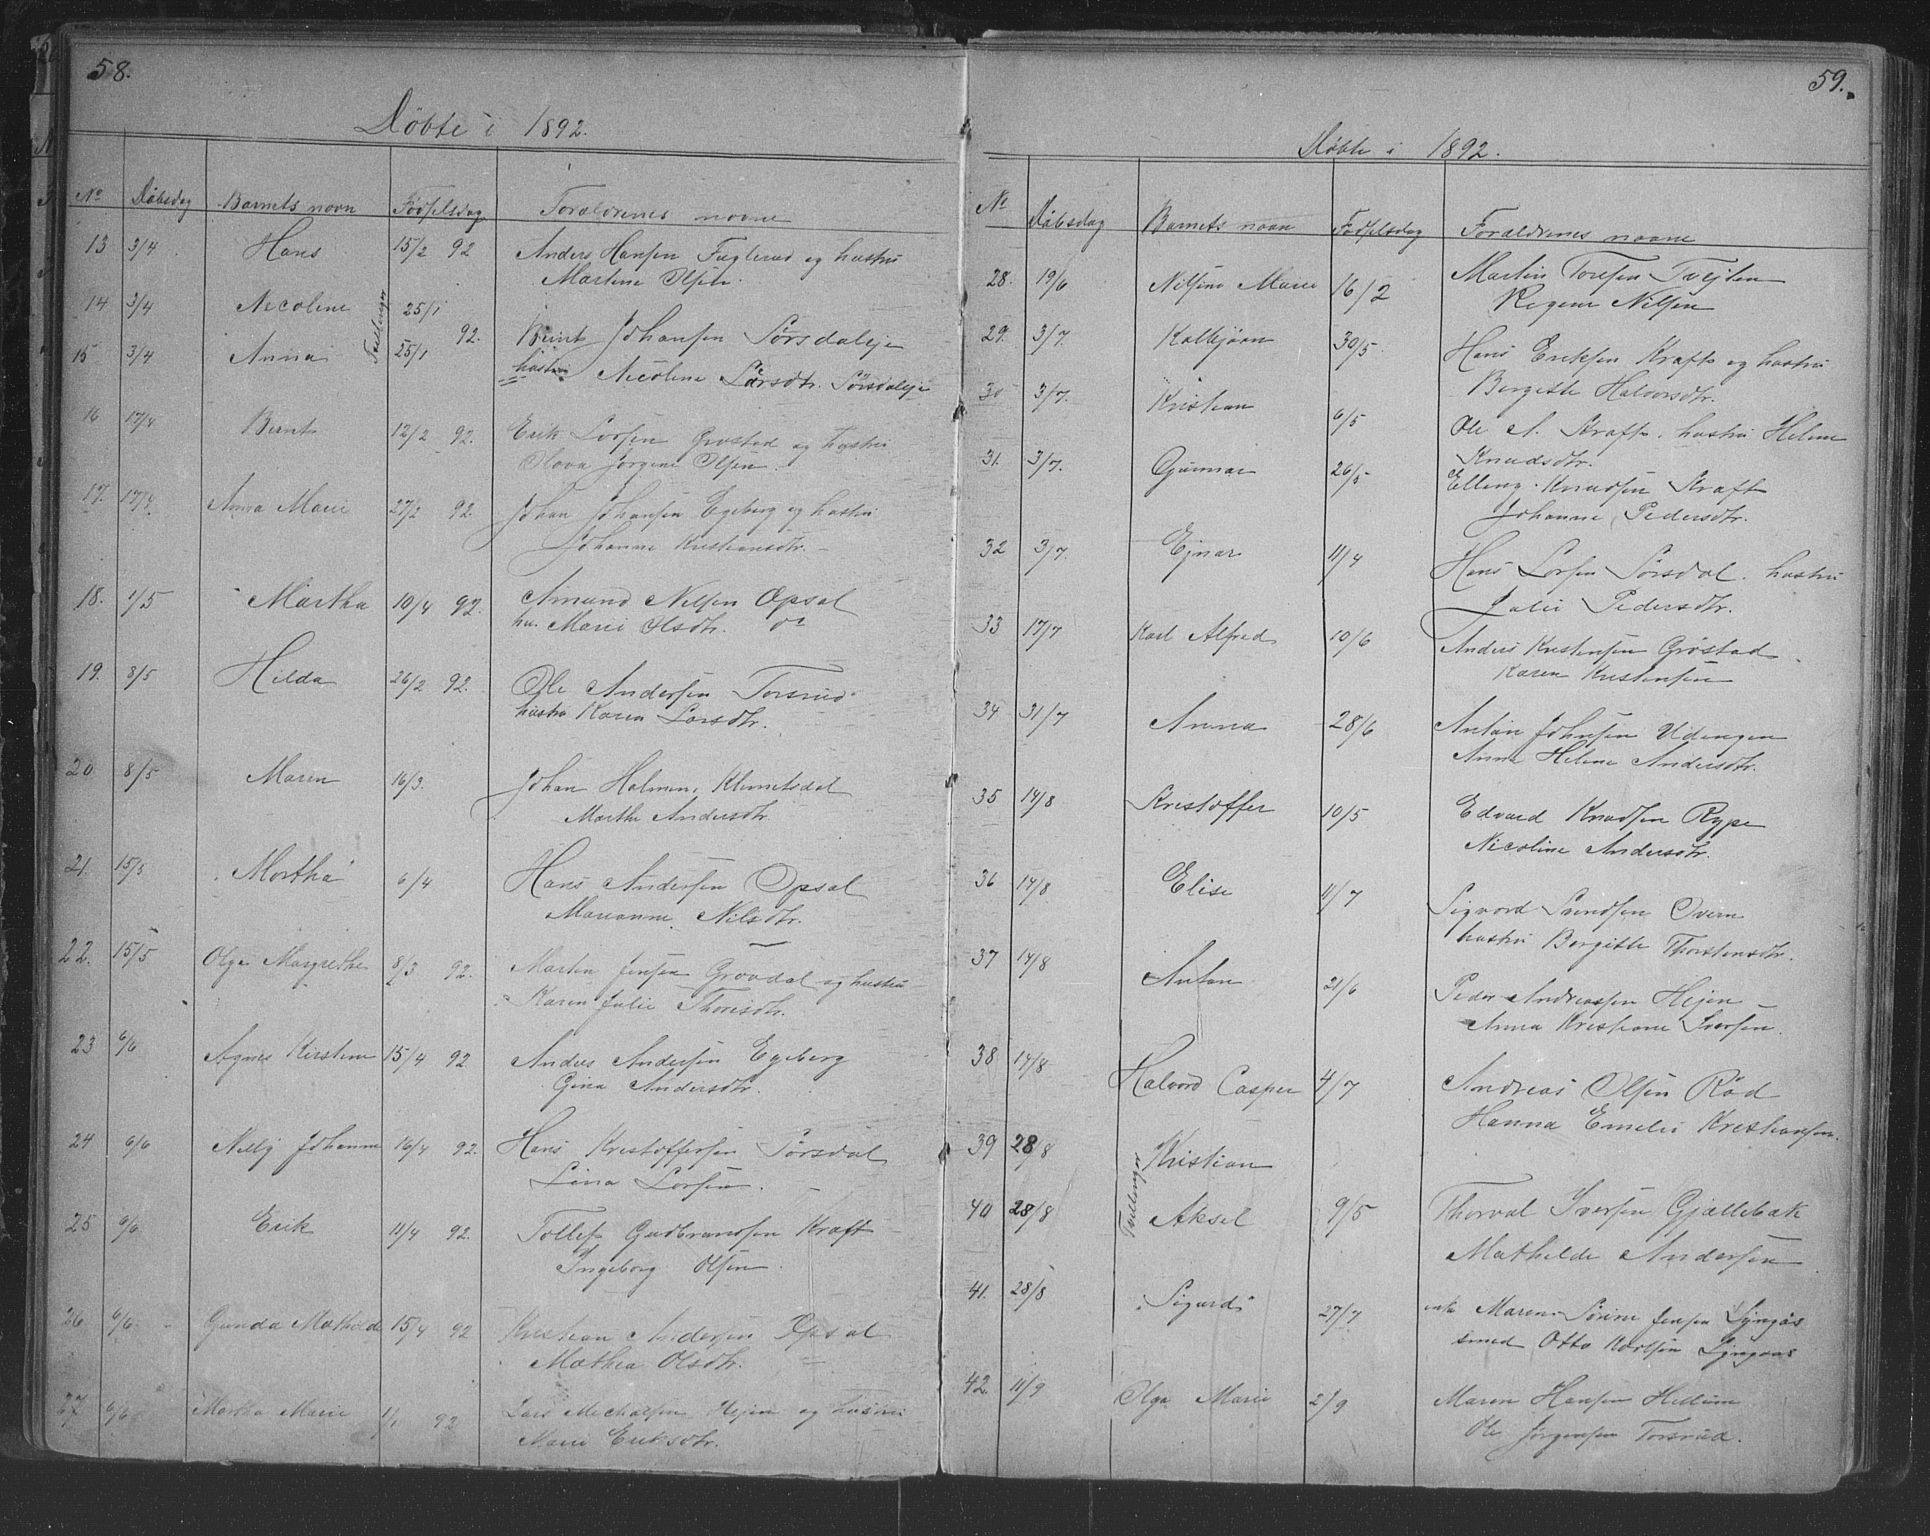 58.
Døbte i 1892.
No Døbsdag Barnets navn Fødselsdag Forældrenes navne
13 3/4 Hans 15/2 92 Anders Hansen Fuglerud og hustru
Martine Olsen.
14 3/4 Nicoline Tvillinger 25/1
92. Bernt Johansen Sørsdaleje
15 3/4 Anna 25/1
hustru Nicoline Larsdtr. Sørsdaleje
16 17/4 Bernt 12/2 92. Erik Larsen Grøstad og hustru
Olava Jørgine Olsen.
17. 17/4 Anna Marie 27/2 92. Johan Johansen Egeberg og hustru
Johanne Kristiansdtr.
18. 1/5 Martha 10/4 92. Amund Nilsen Opsal
hu. Marie Olsdtr. do
19. 8/5 Hilda 26/2 92. Ole Andersen Torsrud
hustru Karen Larsdtr.
20 8/5 Maren 16/3. Johan Holmen, Klemetsdal
Marthe Andersdtr.
21. 15/5 Martha 6/4 Hans Andersen Opsal
Marianne Nilsdtr.
22. 15/5 Olga Margrethe 8/3 92. Martin Jensen Grøvdal og hustru
Karen Julie Thorisdtr.
23 6/6 Agnes Kirstine 15/4 92 Anders Andersen Egeberg
Gina Andersdtr.
24 6/6 Nelly Johanne 16/4 92. Hans Kristoffersen Sørsdal
Lina Larsen.
25 6/6 Erik 11/4 92. Tollef Gudbrandsen Kraft
Ingeborg Olsen.
26 6/6. Gunda Mathilde 15/4 92 Kristian Andersen Opsal
Mathea Olsdtr.
27 6/6 Martha Marie 1/1 92 Lars Michalsen Hejen og hustru
Marie Eriksdtr.
59.
Døbte i 1892.
No Døbsdag Barnets navn Fødselsdag Forældrenes navne
28. 19/6 Nilsine Marie 16/2 Martin Toresen Tvejten
Regine Nilsen
29. 3/7. Kolbjørn 30/5. Hans Eriksen Kraft og hustru
Bergitte Halvorsdtr.
30 3/7. Kristian 6/5 Ole A. Kraft. hustru Helene
Knudsdtr.
31. 3/7. Gunnar 26/5 Elling Knudsen Kraft
Johanne Pedersdtr.
32 3/7. Ejnar 11/4 Hans Larsen Sørsdal. hustru
Julie Pedersdtr.
33 17/7 Karl Alfred 10/6 Anders Kristensen Grøstad
Karen Kristensen
34 31/7 Anna 28/6 Anton Johnsen Udengen
Anna Helene Andersdtr.
35 14/8 Kristoffer 10/5 Edvard Knudsen Rype
Nicoline Andersdtr.
36 14/8. Elise 11/7 Sigvard Svendsen Overn
hustru Bergitte Thorstensdtr.
37 14/8 Anton 21/6 Peder Andreassen Hejen
Anna Kristiane Iversen.
38 14/8 Halvord Casper 4/7 Andreas Olsen Rød
Hanna Emelie Kristiansen.
39 28/8 Kristian
Tvillinger
40 28/8 Aksel 9/5 Thorval Iversen Gjællebæk
Mathilde Andersen
41. 28/8 Sigurd 27/7 Maren Sørine Jensen Lyngås
smed Otto Karlsen Lyngaas
42. 11/9 Olga Marie 2/9 Maren Hansen Hellum
Ole Jørgensen Torsrud.